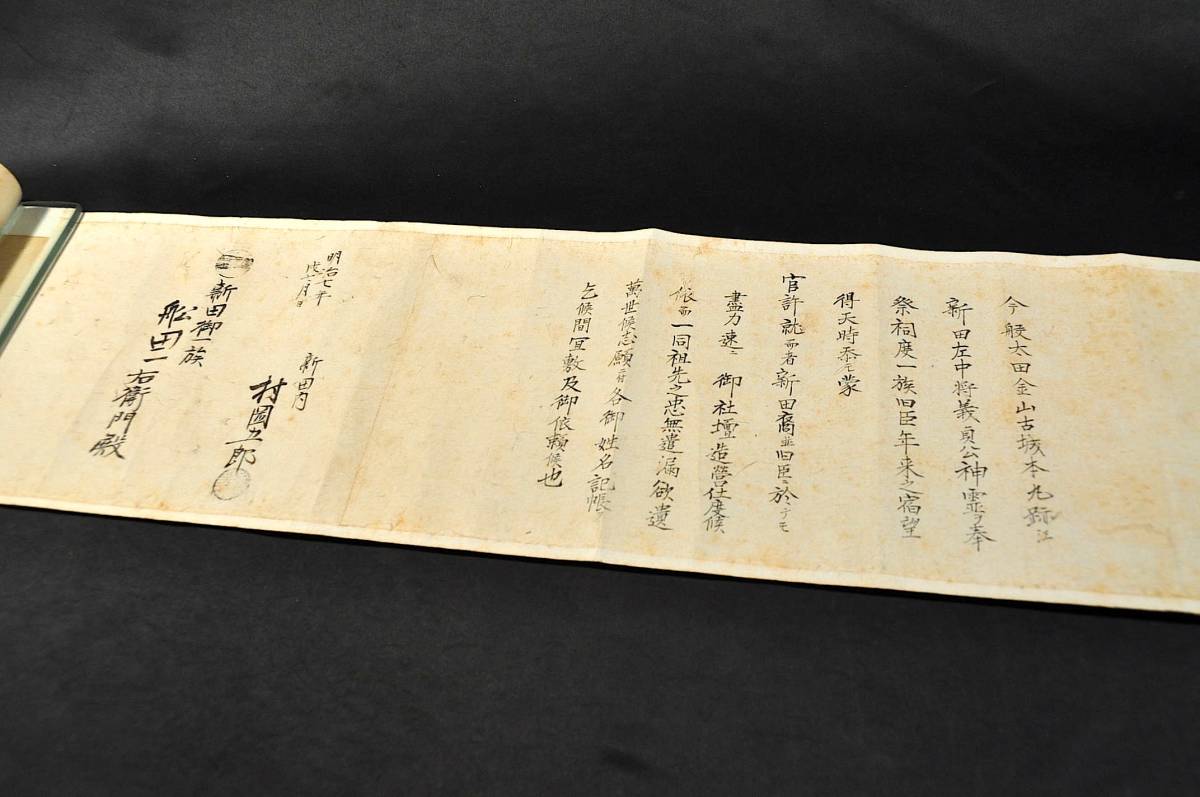 今般太田金山古城本丸跡江
新田左中将義貞公神霊ヲ奉
祭祠度一族旧臣年来之宿望
得天時忝モ蒙
官許就而者新田裔並旧臣ニ於テモ
盡力速ニ御社壇造営仕度候
依而一同祖先之忠無遺漏欲遺
萬世候志願ニ付各御姓名記帳
乞候間宜敷及御依頼候也
明治七年
戌一月日
新田内
村岡五郎
新田御一族
船田一右衛門殿